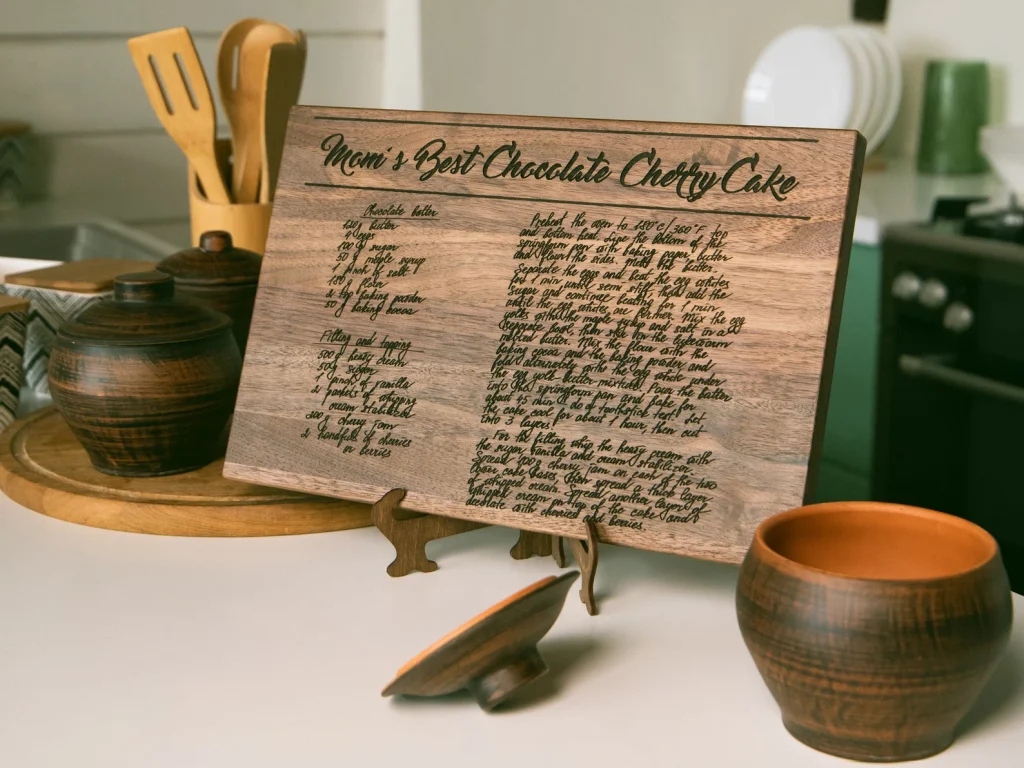 Mom's Best Chocolate Cherry Cake
Chocolate batter
butter
4 eggs
100 g sugar
50 g maple syrup
1 pinch of salt
150 g flour
2 tsp baking powder
50 g baking cocoa
Filling and topping
500 g heavy cream
50 g sugar
1 pinch of vanilla
2 packets of whipping
cream stabilizer
300 g cherry jam
2 handfull of cherries
or berries
Preheat the oven to 180°c/360°F top
and bottom heat. Line the bottom of the
springform pan with baking paper, butter
and flour the sides. Melt the butter.
Separate the eggs and beat the egg whites
for 1 min until semi stiff. Then add the
sugar and continue beating for 1 min
until the egg whites are firmer. Mix the egg
yolks with the maple syrup and salt in a
separate bowl, then stir in the lukewarm
melted butter. Mix the flour with the
baking cocoa and the baking powder and
add alternately with the egg white under
the egg yolk-butter mixture. Pour the batter
into the springform pan and bake for
about 45 min - do a toothpick test. Let
the cake cool for about 1 hour, then cut
into 3 layers
For the filling whip the heavy cream with
the sugar, vanilla and cream stabilizer.
Spread 100 g cherry jam on each of the two
lower cake bases, then spread a thick layer
of whipped cream. Spread another layer of
whipped cream on top of the cake and
decorate with cherries and berries.